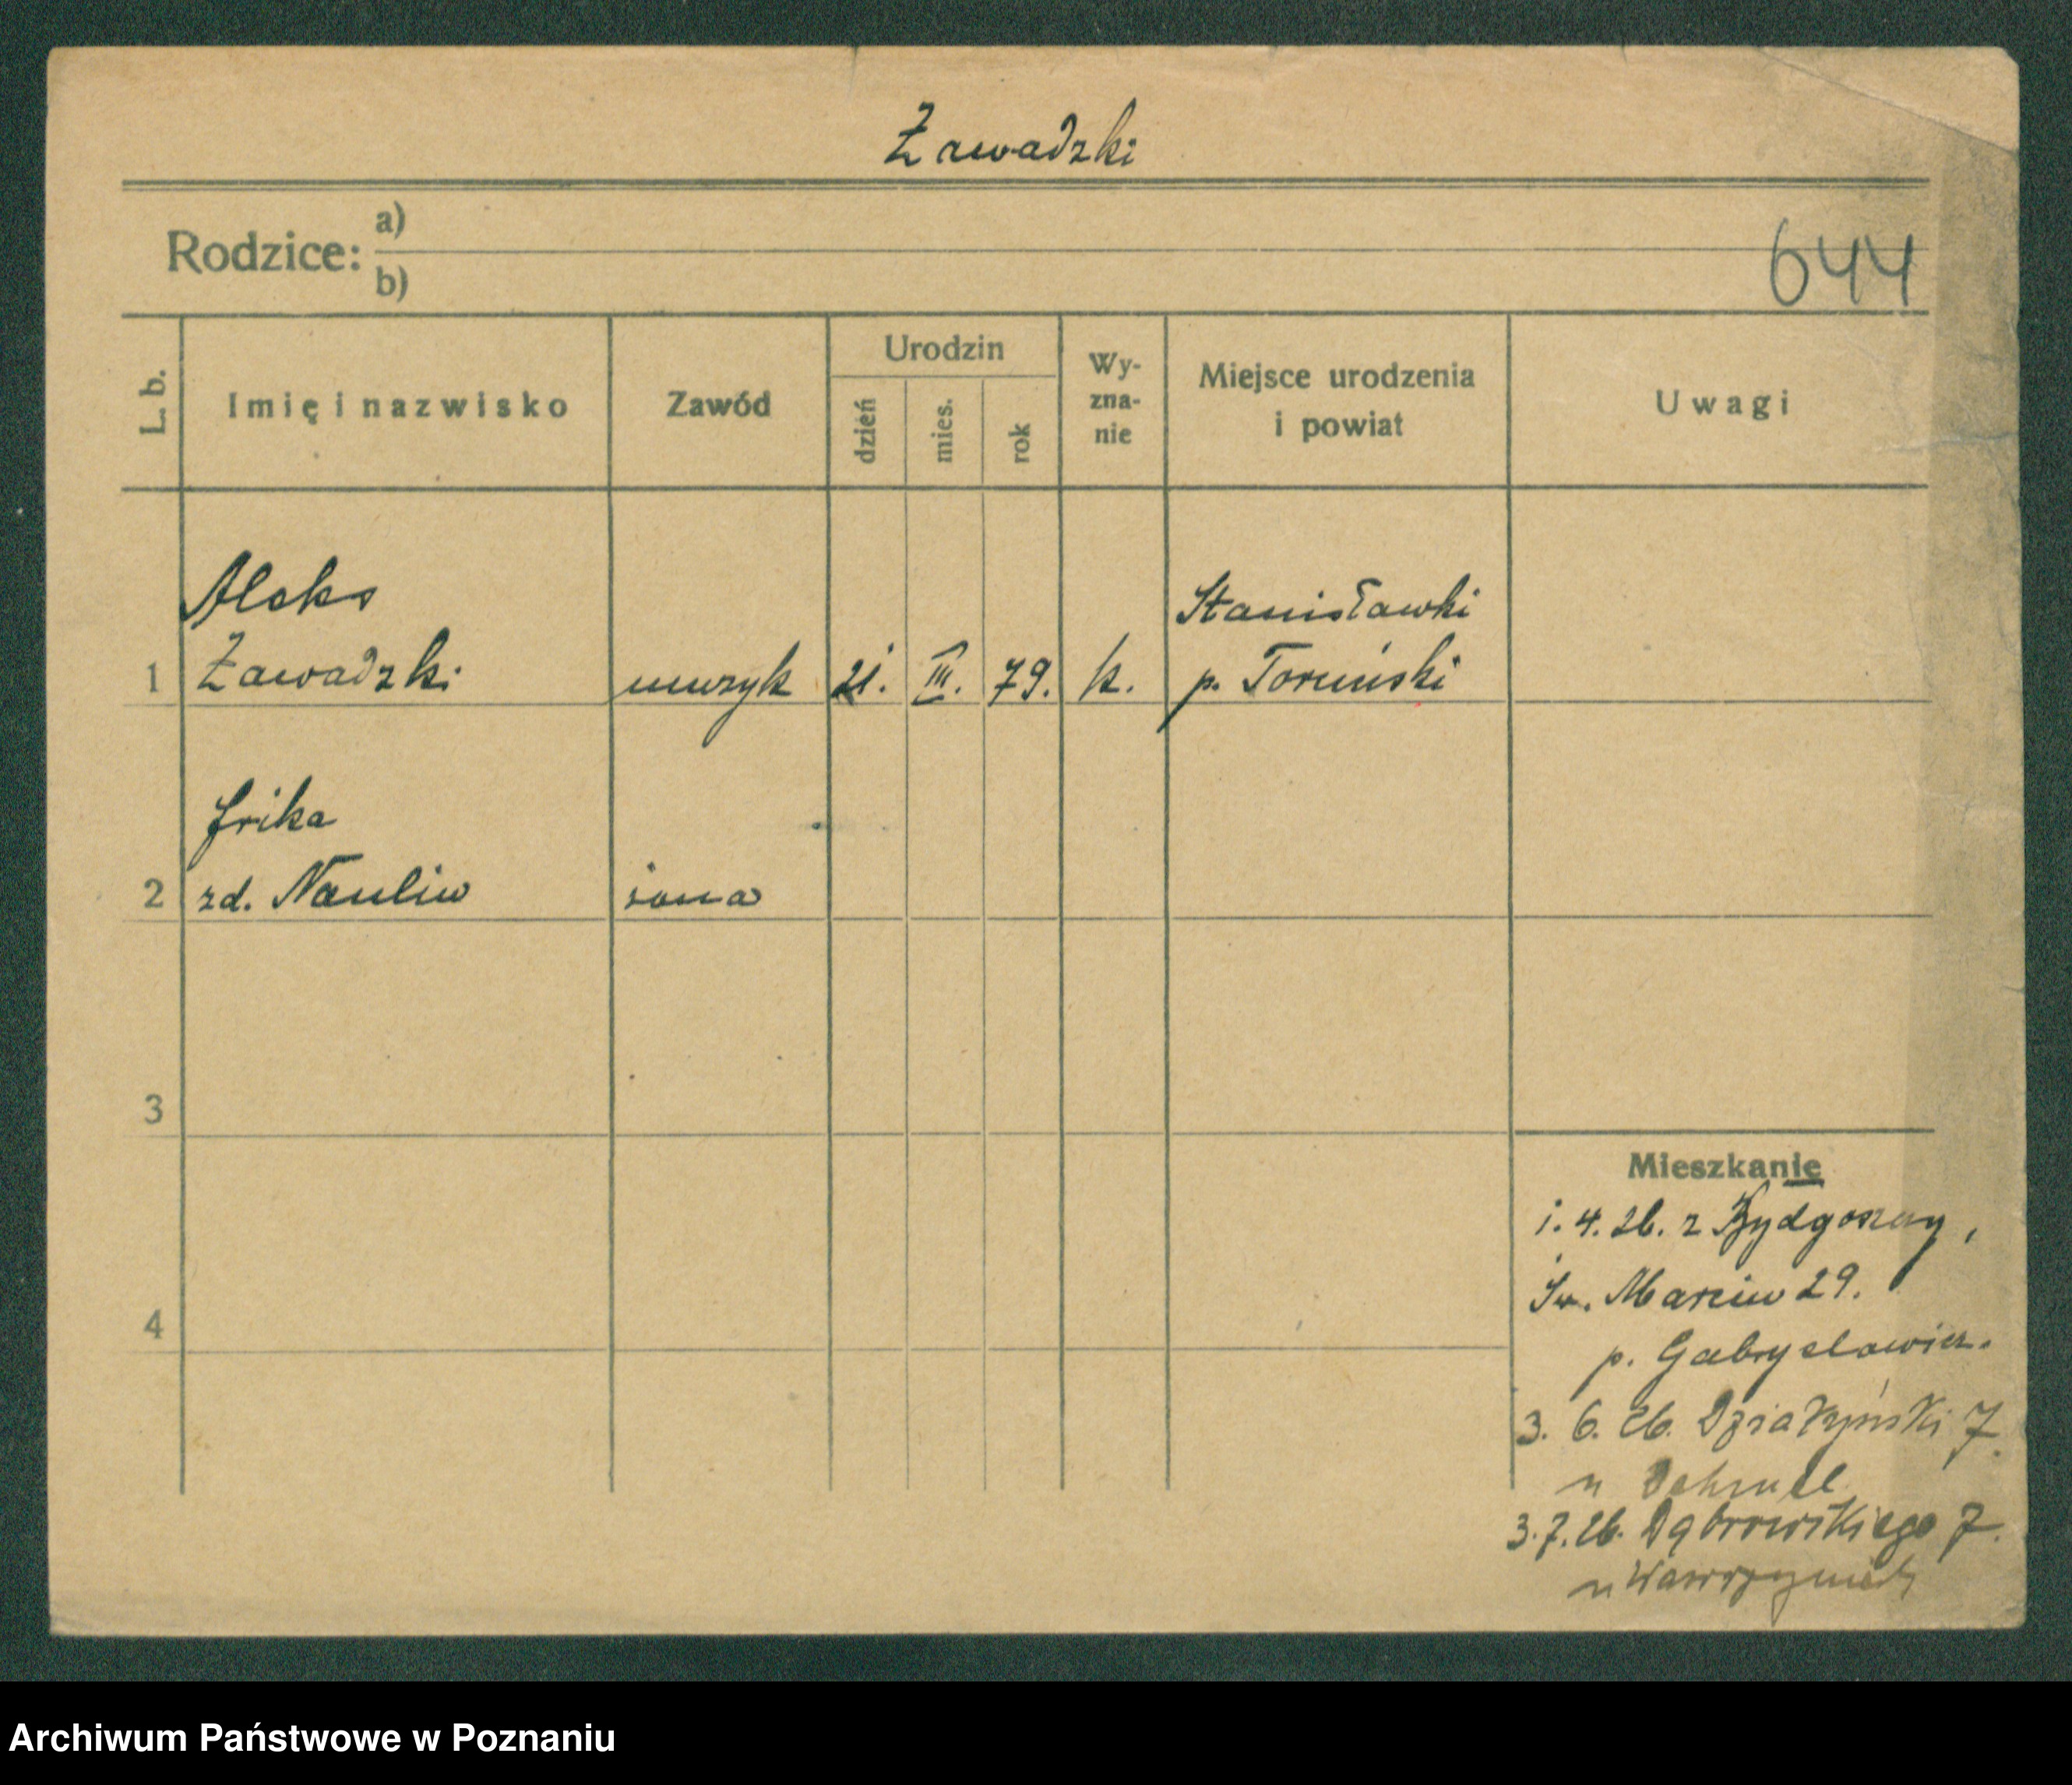 Zawadzki
Rodzice: a)
b)
644
L. b.
Imię i nazwisko
Zawód
Urodzin
dzień
mies.
rok
Wy-
zna-
nie
Miejsce urodzenia
i powiat
Uwagi
Aleks
Stanisławki
1 Zawadzki muzyk 21. III. 79. k. p. Toruński
2 zd. żona
3
4
Mieszkanie
1. 4. 26. z Bydgoszczy,
Św. Marcin 29.
p.
3. 6. 26. Działyński 7.
u
3. 7. 26. Dąbrowskiego 7.
u
Archiwum Państwowe w Poznaniu